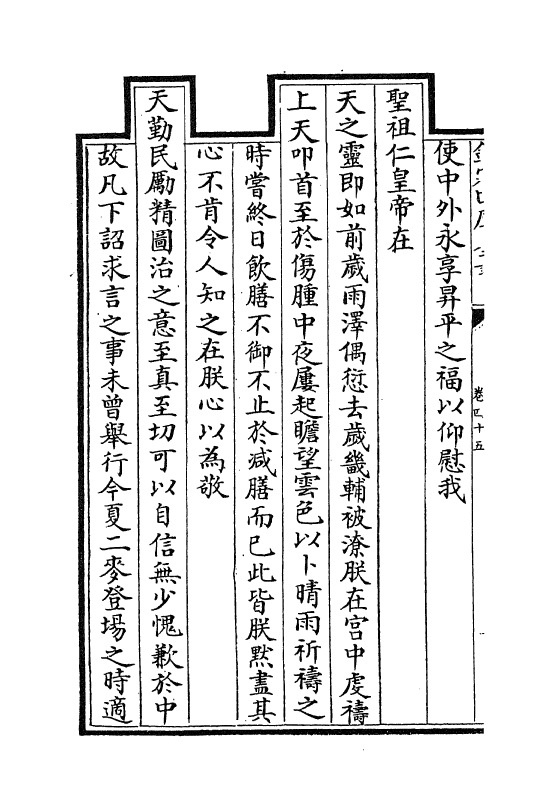 卷四十五
使中外永享昇平之福以仰慰我
聖祖仁皇帝在
天之靈即如前歲雨澤偶愆去歲畿輔被潦朕在宮中虔禱
上天叩首至於傷腫中夜屢起瞻望雲色以卜晴雨祈禱之
時嘗終日飲膳不御不止於減膳而已此皆朕默盡其
心不肯令人知之在朕心以為敬
天勤民勵精圖治之意至真至切可以自信無少愧歉於中
故凡下詔求言之事未曾舉行今夏二麥登場之時適